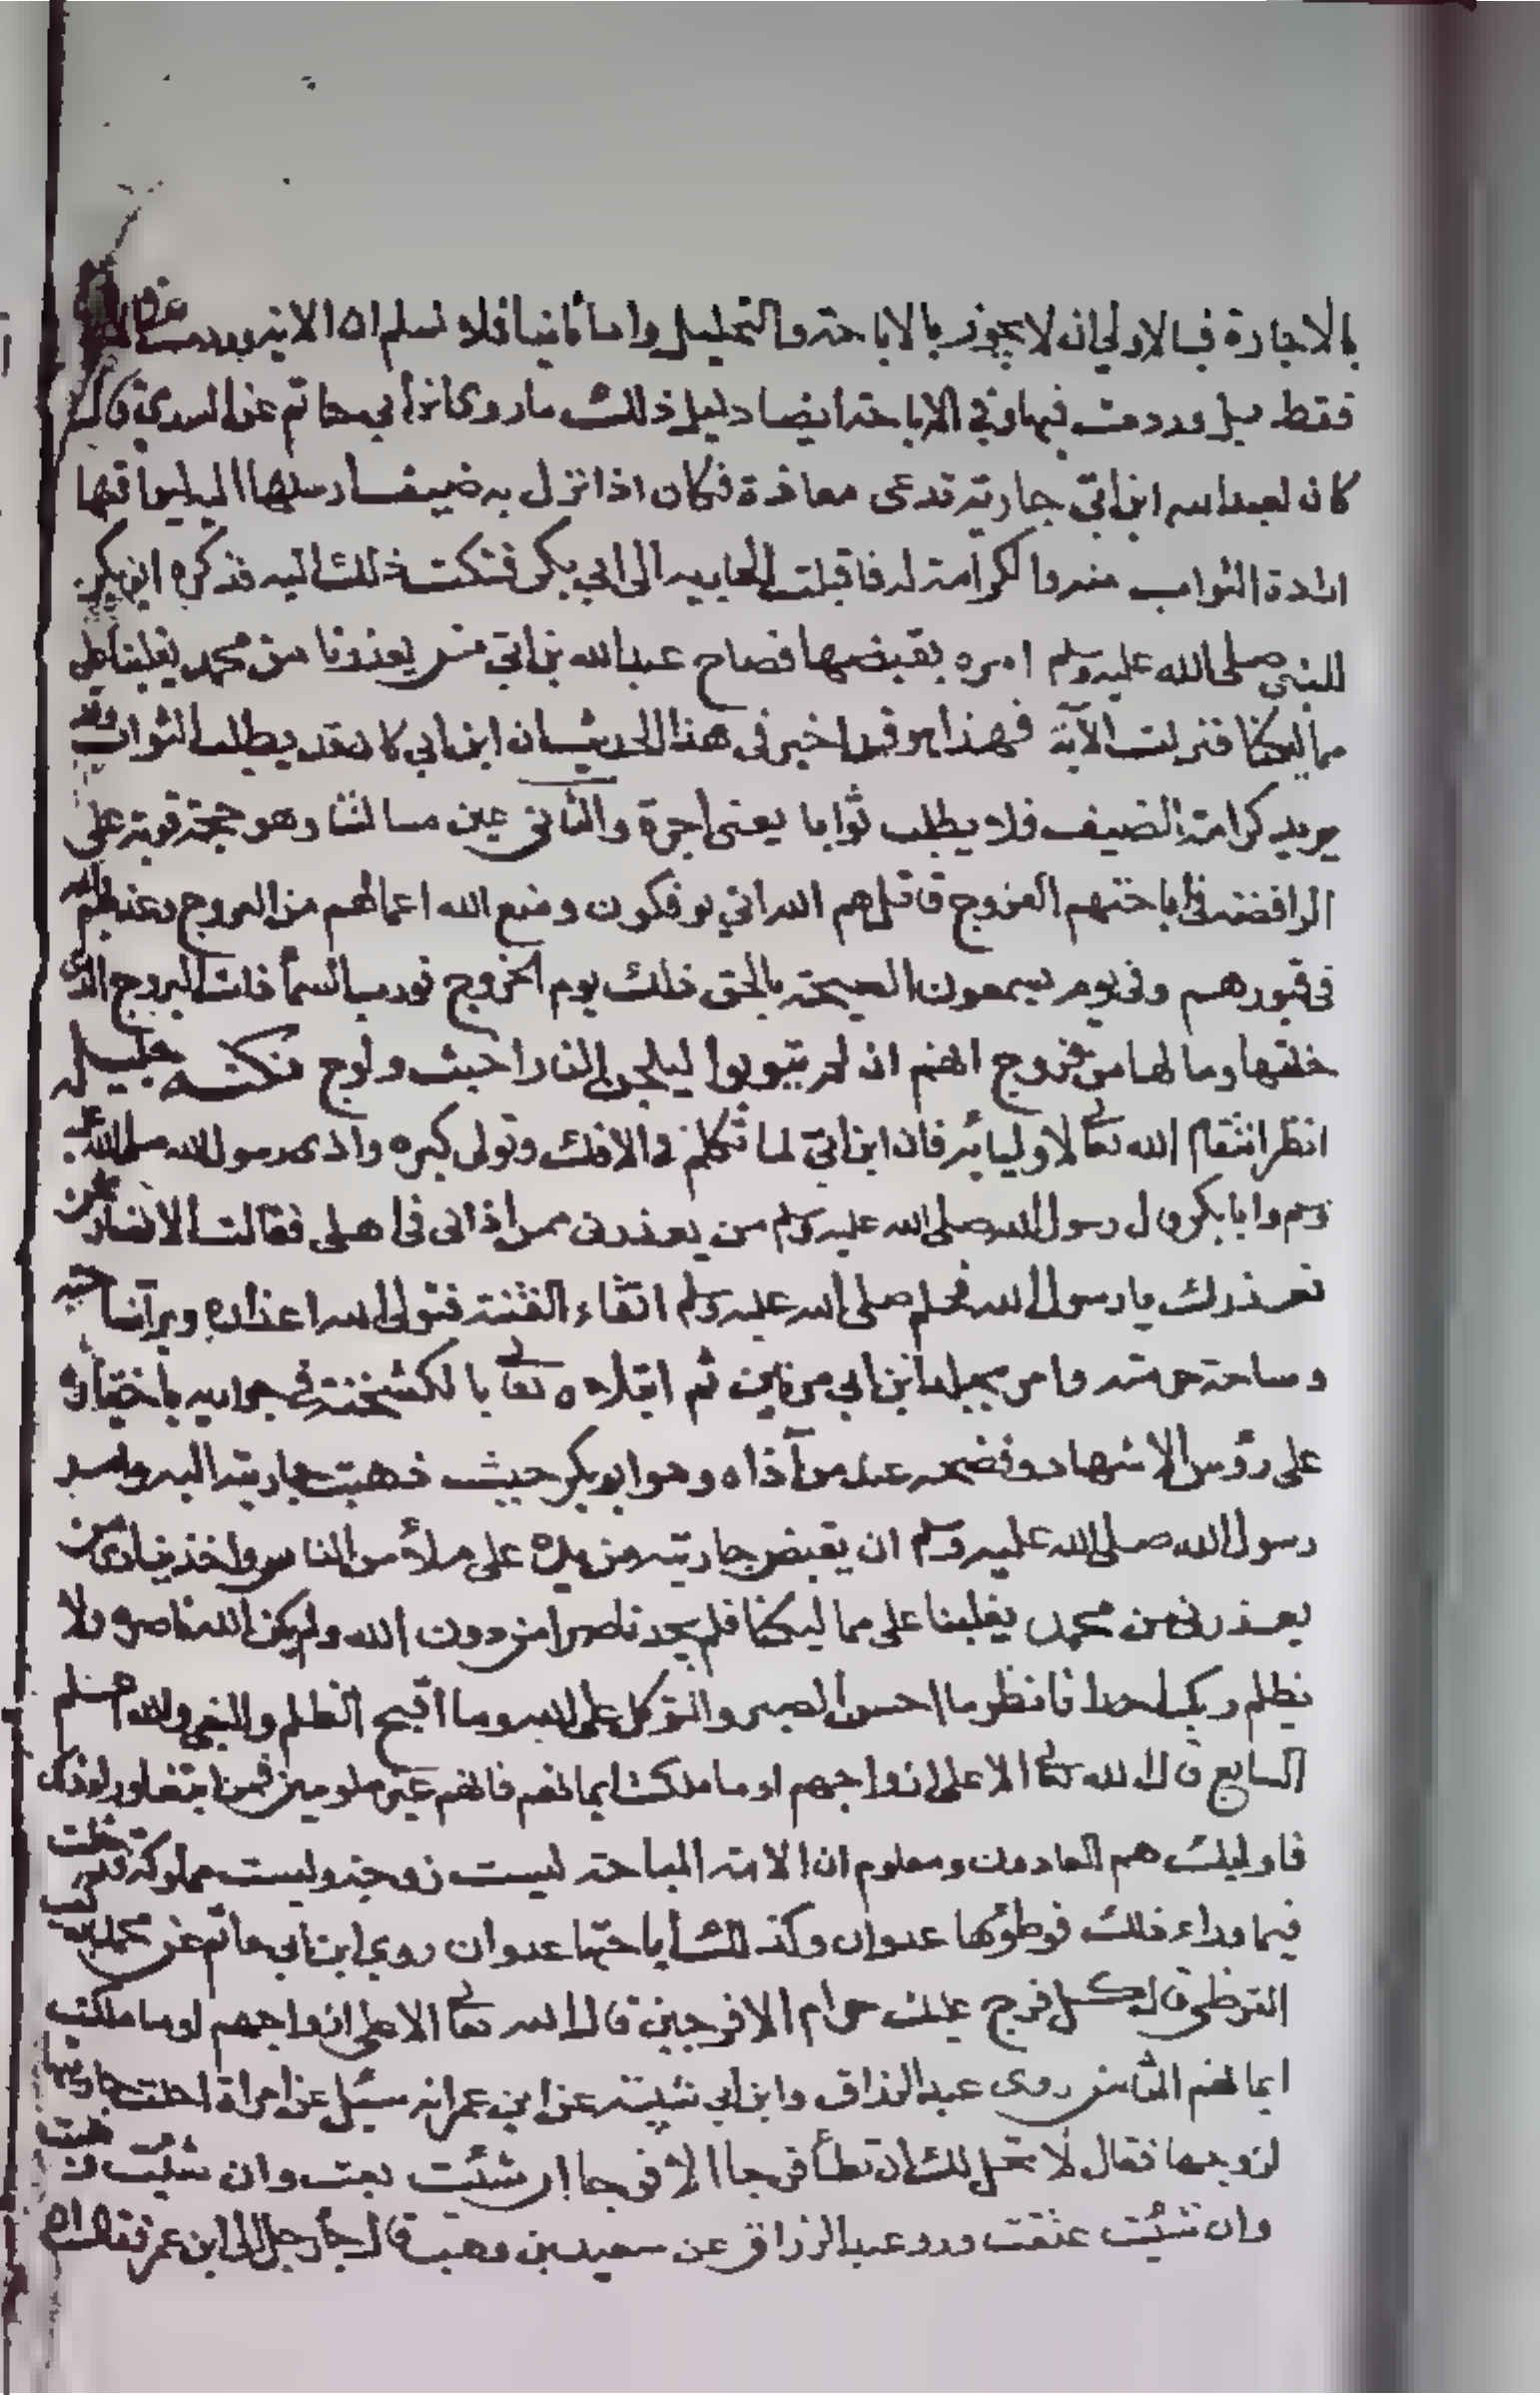 بالاجارة فبالاولى انه لا يجوز بالاباحة والتحليل واما ثانيا فلا نسلم ان الاية وردت
فقط بل وردت فيها وفي الاباحة ايضا دليل ذلك ما روى ابن أبي حاتم عن السدي قال
كان لعبد الله ابن ابي جارية تدعى معاذة فكان اذا نزل به ضيف أرسلها اليه ليواقعها
ارادة الثواب منه والكرامة له فاقبلت الجارية الى ابي بكر فشكت ذلك اليه فذكره ابو بكر
للنبي صلى الله عليه وسلم امره بقبضها فصاح عبد الله بن ابي من يعذرنا من محمد يغلبنا على
مماليكنا فنزلت الآية فهذا هو قد اخبر في هذا الحديث ان ابن ابي كان قد يطلب الثواب وقد
يريد كرامة الضيف فلا يطلب ثوابا يعني اجرة والثاني عين مسالتنا وهو حجة قوية على
الرافضة في اباحتهم الفروج قاتلهم الله اني يوفكون ومنع الله اعمالهم من العروج وعذبهم الله
في قبورهم وفي يوم يسمعون الصيحة بالحق ذلك يوم الخروج فورب السمأ ذات البروج الذي
خلقها وما لها من فروج انهم ان لم يتوبوا ليلجن النار احبث ولوج نكتة جليلة
انظر انتقام الله تعالى لاوليائه فان ابن ابي لما تكلم في الافك وتولى كبره واذى رسول الله صلى الله عليه
وسلم وابا بكر وقال رسول الله صلى الله عليه وسلم من يعذرني ممن اذاني في اهلي فقالت الانصار نحن
نعذرك يا رسول الله فحلم صلى الله عليه وسلم اتقاء الفتنة فتولى الله اعذاره وبرآءة حبه
وساحة حرمته وامر بجلد ابن ابي مرتين ثم ابتلاه تعالى بالكشخنة في جواريه باختياره
على رؤس الاشهاد وفضحه عند من آذاه وهو ابو بكر حيث ذهبت جاريته اليه وامر
رسول الله صلى الله عليه وسلم ان يقبض جاريته من يده على ملأ من الناس واخذ ينادي من
يعذرني من محمد يغلبنا على مماليكنا فلم يجد ناصرا من دون الله ولم يكن الله ناصره ولا
يظلم ربك احدا فانظر ما احسن الصبر والتوكل على الله وما اقبح الظلم والبغي والله اعلم
السابع قال الله تعالى الا على ازواجهم او ما ملكت ايمانهم فانهم غير ملومين فمن ابتغى وراء ذلك
فاوليك هم العادون ومعلوم ان الامة المباحة ليست زوجة وليست مملوكة فدخلت
فيما وراء ذلك فوطؤها عدوان وكذلك أباحتها عدوان روى ابن ابي حاتم عن محمد بن كعب
القرظي قال كل فرج عليك حرام الا فرجين قال الله تعالى الا على ازواجهم او ما ملكت
ايمانهم الثامن روى عبد الرزاق وابن ابي شيبة عن ابن عمر انه سئل عن امراة احلت جاريتها
لزوجها فقال لا تحل لك ان تطأ فرجا الا فرجا ان شئت بعت وان شئت وهبت
وان شئت عتقت وروى عبد الرزاق عن سعيد بن وهب قال جأ رجل الى ابن عمر فقال ان